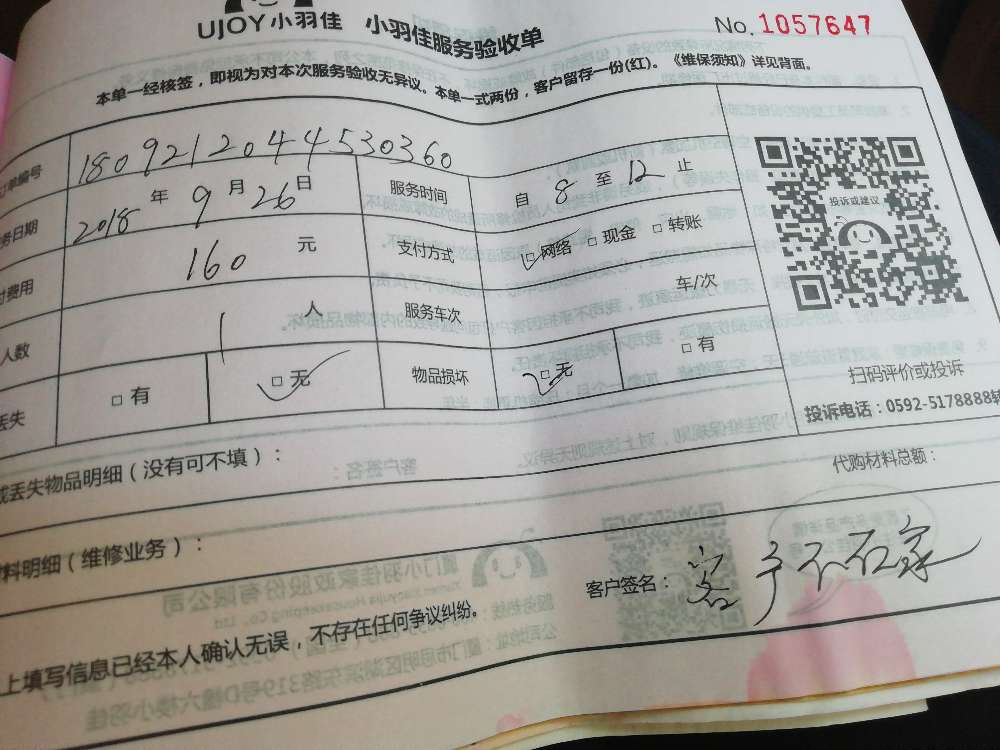 UJOY小羽佳 小羽佳服务验收单 No. 1057647
本单一经核签，即视为对本次服务验收无异议。本单一式两份，客户留存一份(红)。《维保须知》详见背面。
单编号 1809212044530360
务日期 2018 年 9 月 26 日 服务时间 自 8 至 12 止
付费用 160 元 支付方式 □网络 □现金 □转账
人数 1 人 服务车次 车/次
丢失 □有 □无 物品损坏 □无 □有
投诉或建议
扫码评价或投诉
投诉电话：0592-5178888转
或丢失物品明细（没有可不填）：
代购材料总额：
料明细（维修业务）：
客户签名：客户不在家
上填写信息已经本人确认无误，不存在任何争议纠纷。